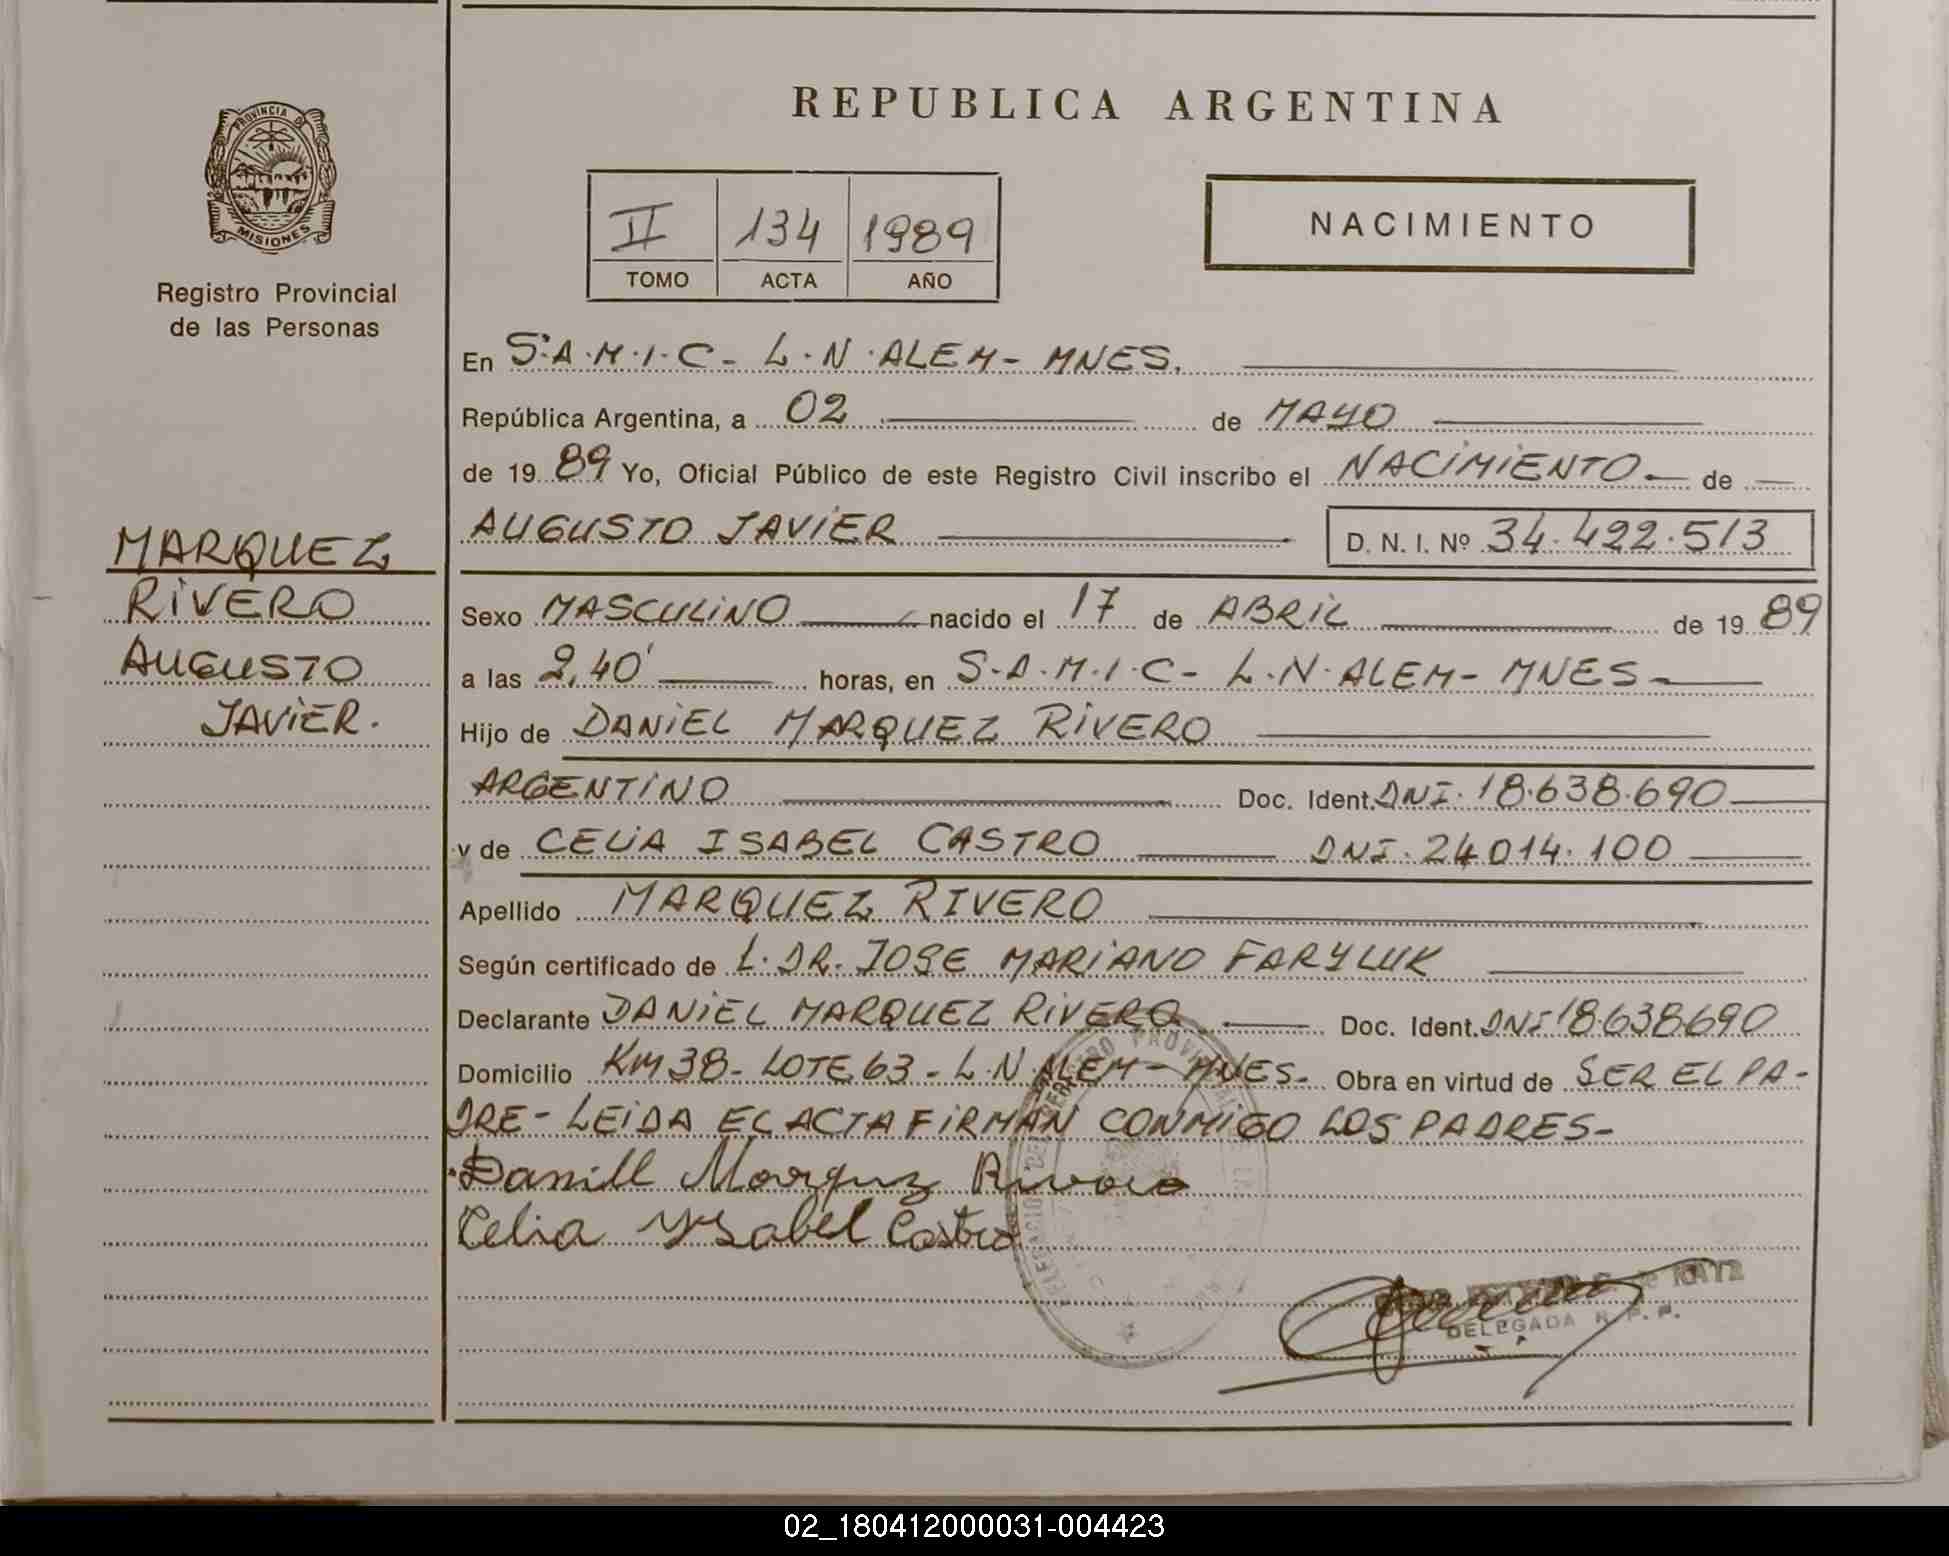 REPUBLICA ARGENTINA
PROVINCIA DE
MISIONES
Registro Provincial
de las Personas
II 134 1989
TOMO ACTA AÑO
NACIMIENTO
En S.A.M.I.C- L.N.ALEM- MNES.
República Argentina, a 02 de MAYO
de 1989 Yo, Oficial Público de este Registro Civil inscribo el NACIMIENTO de
AUGUSTO JAVIER D. N. I. Nº 34.422.513
MARQUEZ
RIVERO
AUGUSTO
JAVIER.
Sexo MASCULINO nacido el 17 de ABRIL de 1989
a las 2,40' horas, en S.A.M.I.C- L.N.ALEM- MNES-
Hijo de DANIEL MARQUEZ RIVERO
ARGENTINO Doc. Ident. DNI. 18.638.690
y de CELIA ISABEL CASTRO DNI. 24.014.100
Apellido MARQUEZ RIVERO
Según certificado de L. DR. JOSE MARIANO FARYLUK
Declarante DANIEL MARQUEZ RIVERO Doc. Ident. DNI 18.638690
Domicilio KM 38- LOTE 63- L.N.ALEM- MNES- Obra en virtud de SER EL PA-
DRE- LEIDA EL ACTA FIRMAN CONMIGO LOS PADRES-
Daniel Marquez Rivero
Celia Ysabel Castro
DELEGADA R. P. P.
02_180412000031-004423